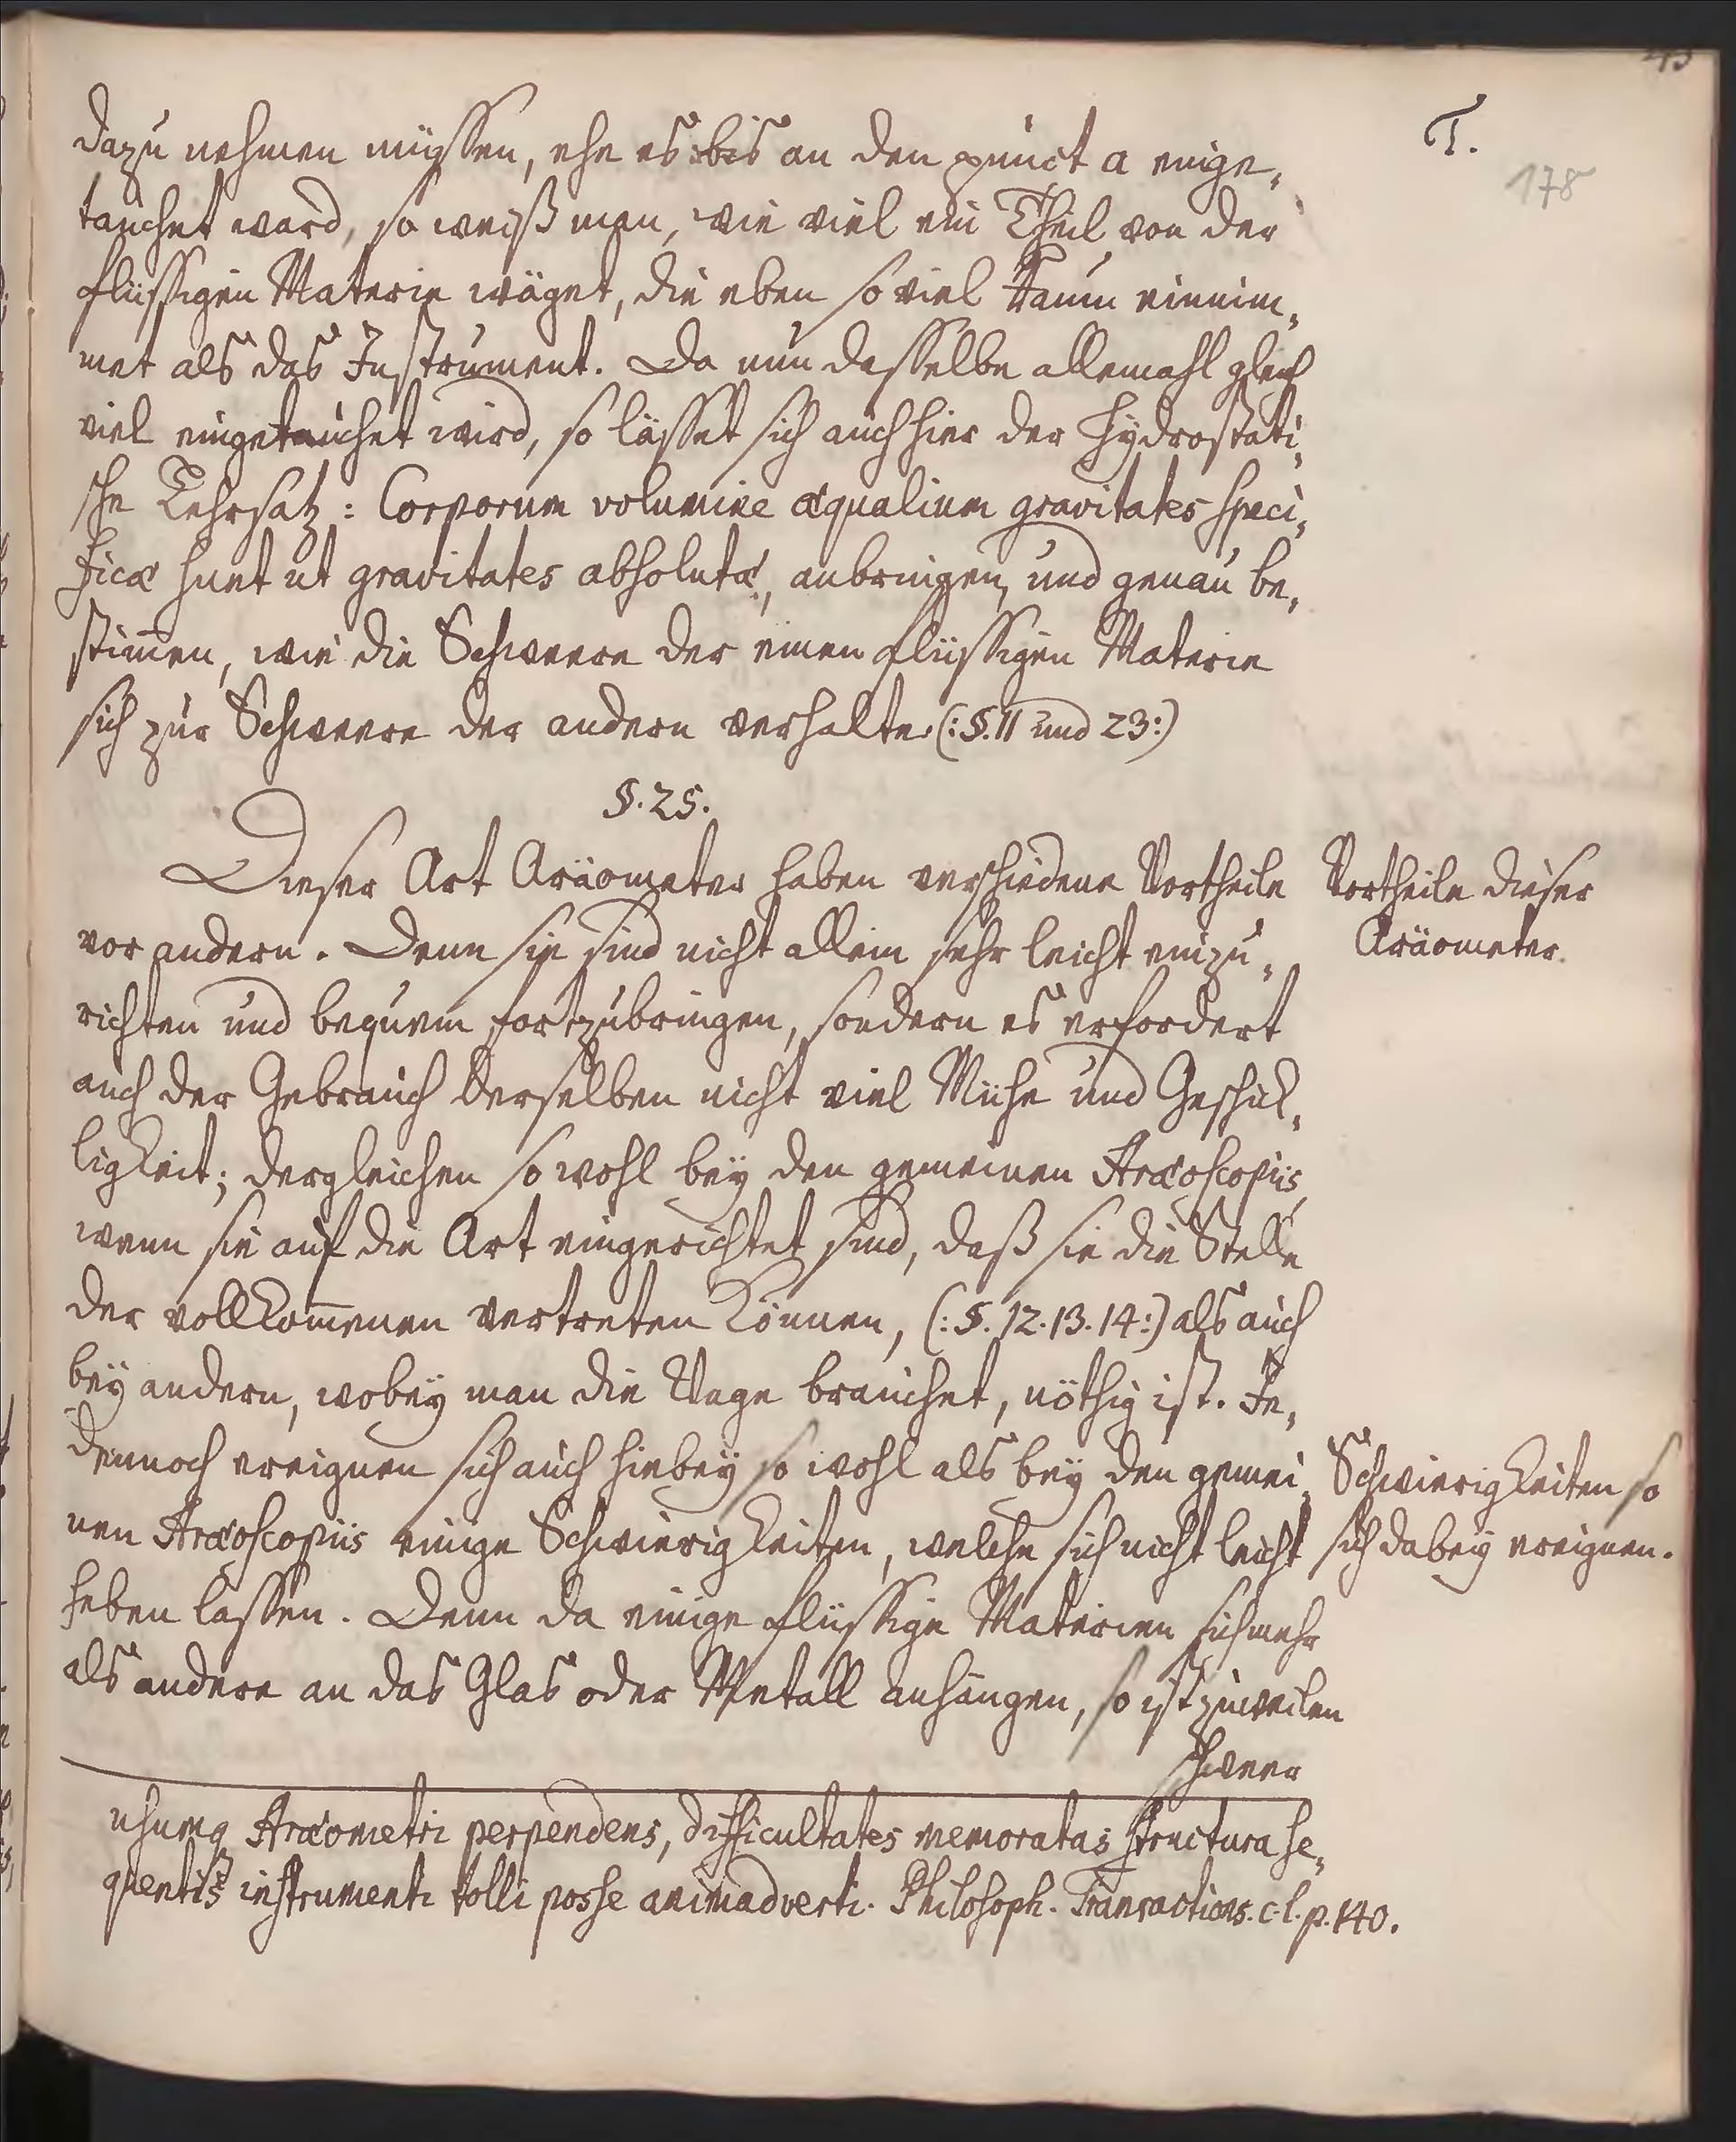 T.
178
dazu nehmen müssen, ehe es bis an den punct a einge„
tauchet ward, so weiß man, wie viel ein Theil von der
flüssigen Materie wäget, die eben so viel Raum einnim„
met als das Instrument. Da nun dasselbe allemahl gleich
viel eingetauchet wird, so lässet sich auch hier der Hydrostati„
sche Lehrsatz: Corporum volumine æqualium gravitates speci„
ficæ sunt ut gravitates absolutæ, anbringen, und genau be„
stim̄en, wie die Schweere der einen flüssigen Materie
sich zur Schweere der andern verhalte (:§.11 und 23:)
§. 25.
Dieser Art Aräometer haben verschiedene Vortheile
Vortheile dieser
Aräometer.
vor andern. Denn sie sind nicht allein sehr leicht einzu„
richten und bequem fortzubringen, sondern es erfordert
auch der Gebrauch derselben nicht viel Mühe und Geschick„
ligkeit; dergleichen so wohl bey den gemeinen Aræoscopiis,
wenn sie auf die Art eingerichtet sind, daß sie die Stelle
der vollkom̄enen vertreten können, (:§. 12. 13. 14:) als auch
bey andern, wobey man die Wage brauchet, nöthig ist. Je„
dennoch ereignen sich auch hiebey so wohl als bey den gemei„
Schwierigkeiten so
nen Aræoscopiis einige Schwierigkeiten, welche sich nicht leicht
sich dabey ereignen.
heben lassen. Denn da einige flüssige Materien sich mehr
als andere an das Glas oder Metall anhängen, so ist zuweilen
schweer
usumq Aræometri perpendens, difficultates memoratas structura se„
quentis instrumenti tolli posse animadverti. Philosoph. Transactions. c.l. p. 140.